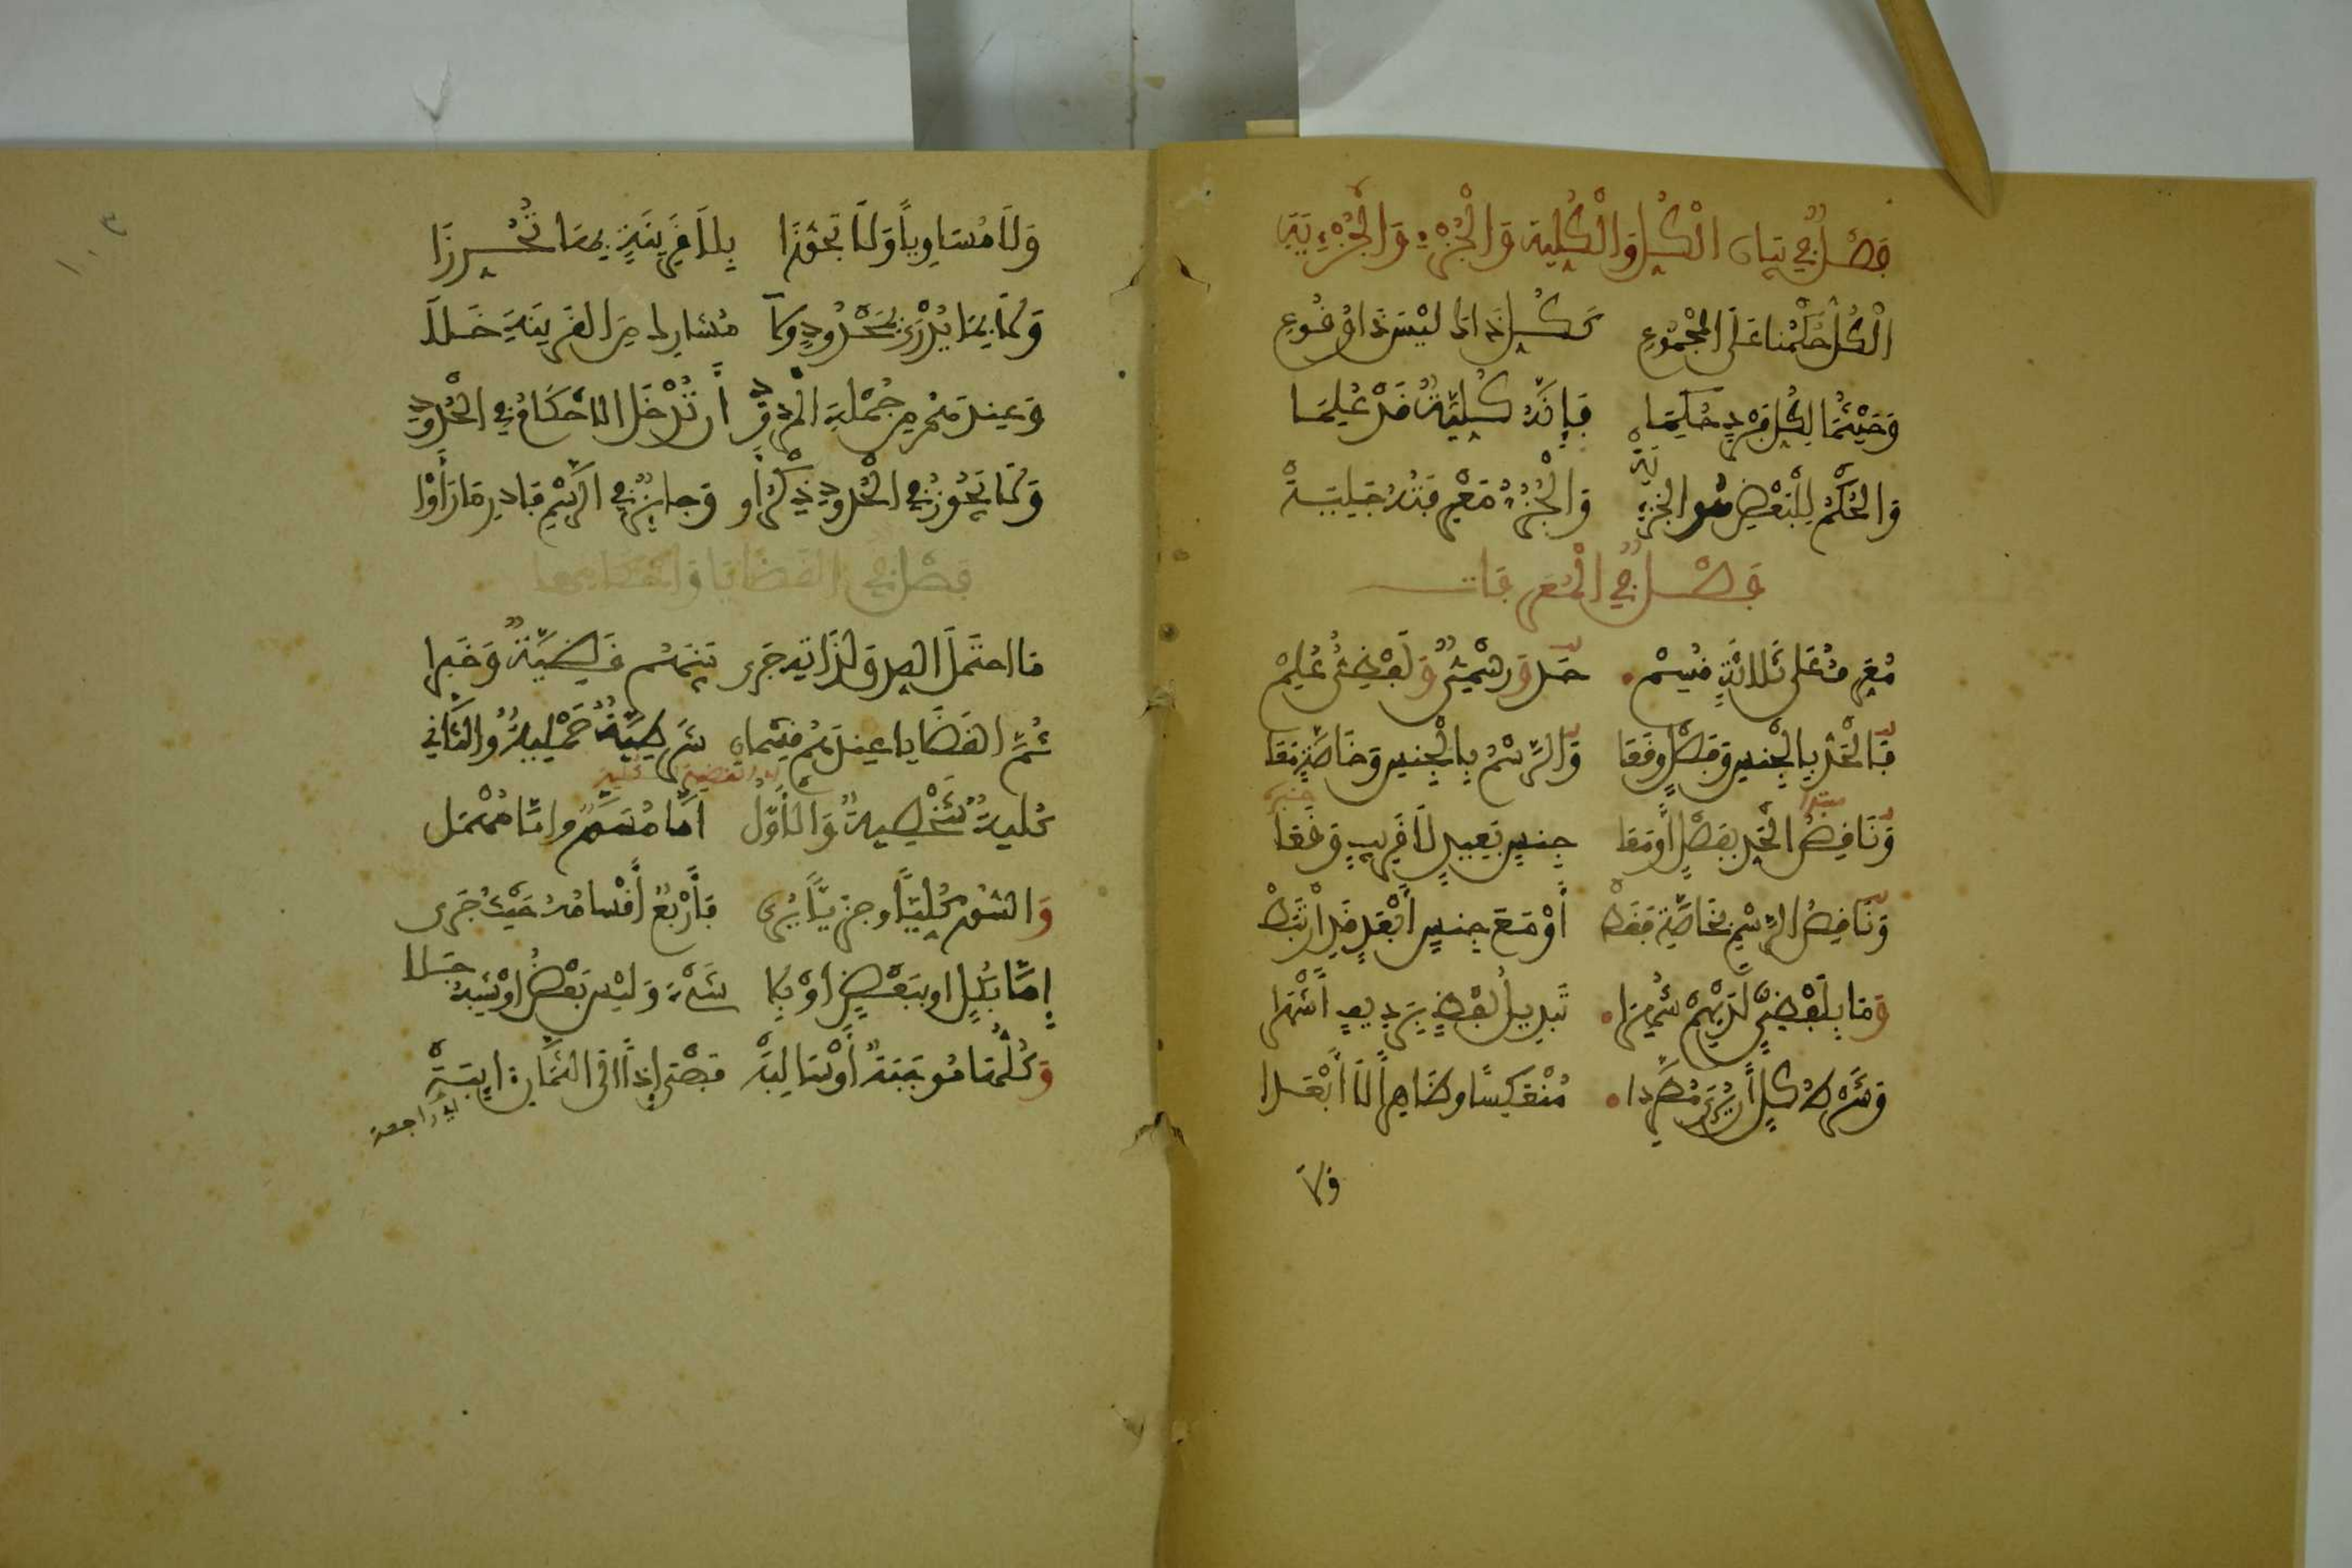 فَصْلٌ في بيان الْكُلِّ وَالْكُلِّية وَالْجُزْءِ وَالْجُزْءِيَّةِ
الْكُلُّ حُكْمُنَا عَلَى الْمَجْمُوعِ كَكُلُّ ذَاكَ لَيْسَ ذَا وُقُوعِ
وَحَيْثُمَا لِكُلِّ فَرْدٍ حُكِمَا فَإِنَّهُ كُلِّيَّةٌ قَدْ عُلِمَا
وَالْحُكْمُ لِلْبَعْضِ هُو الجُزْءِيَّةْ وَالْجُزْءُ مَعْرِفَتُهُ جَلِيَّةْ
فَصْلٌ في الْمُعَرِّفَات
مُعَرِّفٌ عَلَى ثَلَاثَةٍ قُسِمْ حَدٌّ وَرَسْمِيٌّ وَلَفْظِيٌّ عُلِمْ
فَالْحَدُّ بِالْجِنْسِ وَفَصْلٍ وَقَعَا وَالرَّسْمُ بِالْجِنْسِ وَخَاصَّةٍ مَعَا
مبتدا خبره
وَنَاقِصُ الْحَدِّ بِفَصْلٍ أَوْ مَعَا جِنْسٍ بَعِيدٍ لَا قَرِيبٍ وَقَعَا
وَنَاقِصُ الرَّسْمِ بِخَاصَّةٍ فَقَطْ أَوْ مَعَ جِنْسٍ أَبْعَدٍ قَدِ ارْتَبَطْ
وَمَا بِلَفْظِيٍّ لَدَيْهِمْ شُهِرَا تَبْدِيلُ لَفْظٍ بِرَدِيفٍ أَشْهَرَا
وَشَرْطُ كُلٍّ أَنْ يُرَى مُطَّرِدا مُنْعَكِسًا وَظَاهِراً لَا أَبْعَدا
ولا
وَلَا مُسَاوِياً وَلَا تَجَوُّزَا بِلَا قَرِينَةٍ بِهَا تُحُرِّزَا
وَلَا بِمَا يُدْرَى بِمَحْدُودٍ وَلَا مُشْتَرِك مِنَ القَرِينَةِ خَلَا
وَعِنْدَهُمْ مِنْ جُمْلَةِ الْمَرْدُودِ أَنْ تُدْخَلَ الاحْكَامُ في الْحُدُودِ
وَلَا يَجُوزُ في الْحُدُودِ ذِكْرُ أَوْ وَجَائِزٌ في الرَّسْمِ فَادْرِ مَا رَأَوْا
فَصْلٌ في القَضَايَا وَأَحْكَامِهَا
مَا احتَمَلَ الصِّدْقَ لِذَاتِهِ جَرَى بَيْنَهُم قَضِيَّةٌ وَخَبَرا
ثُمَّ القَضَايَا عِنْدَهُمْ قِسْمَان شَرْطِيَّةٌ حَمْلِيَّةٌ وَالثَّانِي
اي القضية الكلية
كُلِّيةٌ شَخْصِيةٌ وَالْأَوَّلُ إِمَّا مُسَوَّرٌ وإِمَّا مُهْمَل
وَالسُّورُ كُلِّيًّا وجزئيًّا يُرَى فَأَرْبَعٌ أَقْسَامُهُ حَيْثُ جَرَى
إِمَّا بِكُلٍّ او بِبَعْضٍ أَوْ بِلَا شَيْءَ وَلَيْس بَعْضُ اوْ شِبْهٌ جَلَا
وَكُلُّهَا مُوجَبَةٌ أَوْ سَالِبَهْ فَهْيَ إِذًا الَى الثَّمَانِ آيِبَةْ
اي راجعة